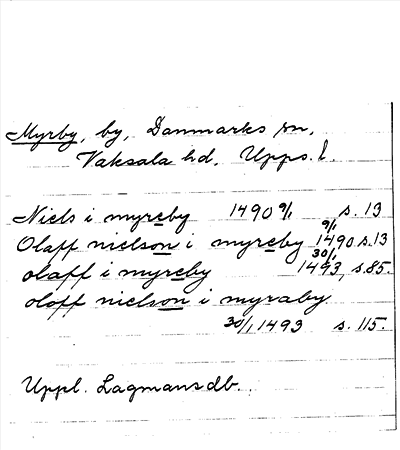 Myrby, by, Danmarks sn,
Vaksala hd. Upps. l.
Niels i myreby 1490 9/1 s. 13
Olaff nielson i myreby 9/1 1490 s. 13
olaff i myreby 30/1 1493, s. 85.
oloff nielson i myraby
30/1 1493 s. 115.
Uppl. Lagmansdb.